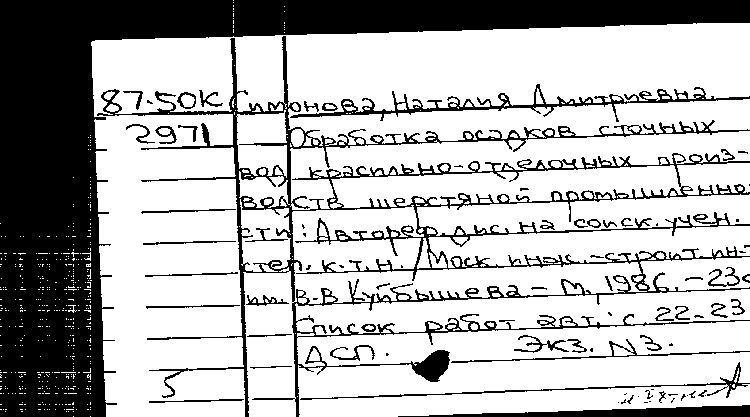 87-50К Симонова, Наталия Дмитриевна.
2971 Обработка осадков сточных
вод красильно-отделочных произ-
водств шерстяной промышленно-
сти: Автореф. дис. на соиск. учен.
степ. к.т.н. / Моск. инж.-строит. ин-т
им. В.В Куйбышева - М., 1986. - 23с
Список работ авт.: с. 22-23
ДСП. Экз. N3.
5